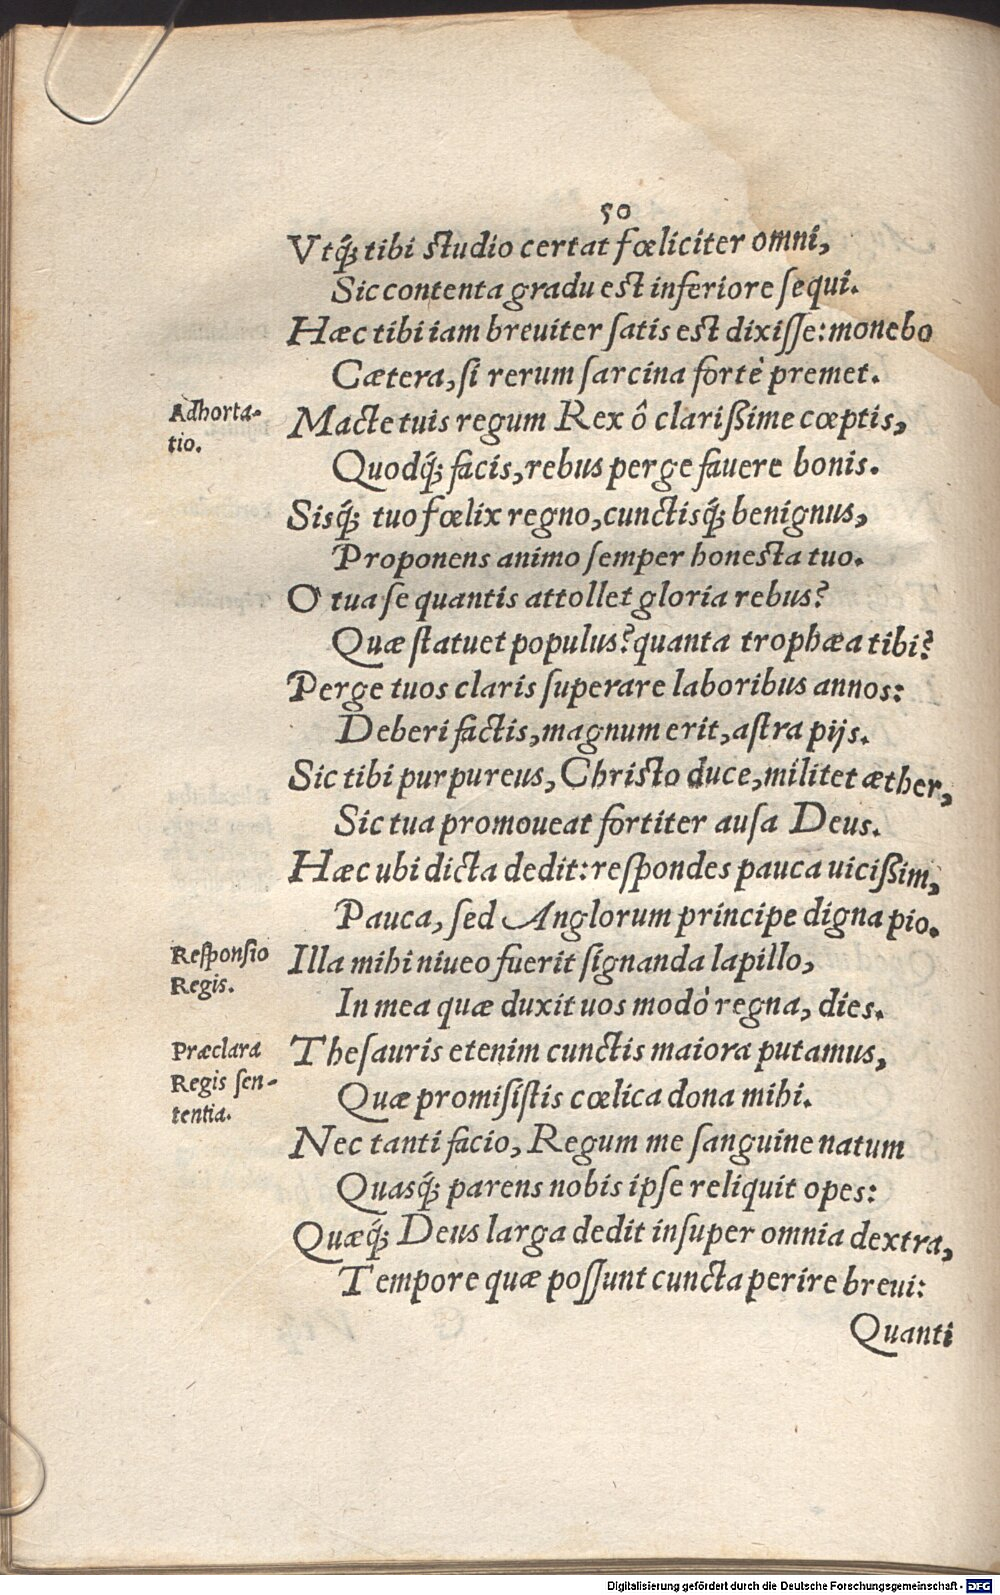 50
Vtq́; tibi studio certat fœliciter omni,
Sic contenta gradu est inferiore sequi.
Hæc tibi iam breuiter satis est dixisse: monebo
Cætera, si rerum sarcina fortè premet.
Adhorta-
tio.
Macte tuis regum Rex ô clarißime cœptis,
Quodq́; facis, rebus perge fauere bonis.
Sisq́; tuo fœlix regno, cunctisq́; benignus,
Proponens animo semper honesta tuo.
O tua se quantis attollet gloria rebus?
Quæ statuet populus? quanta trophæa tibi?
Perge tuos claris superare laboribus annos:
Deberi factis, magnum erit, astra pijs.
Sic tibi purpureus, Christo duce, militet æther,
Sic tua promoueat fortiter ausa Deus.
Hæc ubi dicta dedit: respondes pauca uicißim,
Pauca, sed Anglorum principe digna pio.
Responsio
Regis.
Illa mihi niueo fuerit signanda lapillo,
In mea quæ duxit uos modò regna, dies.
Præclara
Regis sen-
tentia.
Thesauris etenim cunctis maiora putamus,
Quæ promisistis cœlica dona mihi.
Nec tanti facio, Regum me sanguine natum
Quasq́; parens nobis ipse reliquit opes:
Quæq́; Deus larga dedit insuper omnia dextra,
Tempore quæ possunt cuncta perire breui:
Quanti
Digitalisierung gefördert durch die Deutsche Forschungsgemeinschaft - DFG